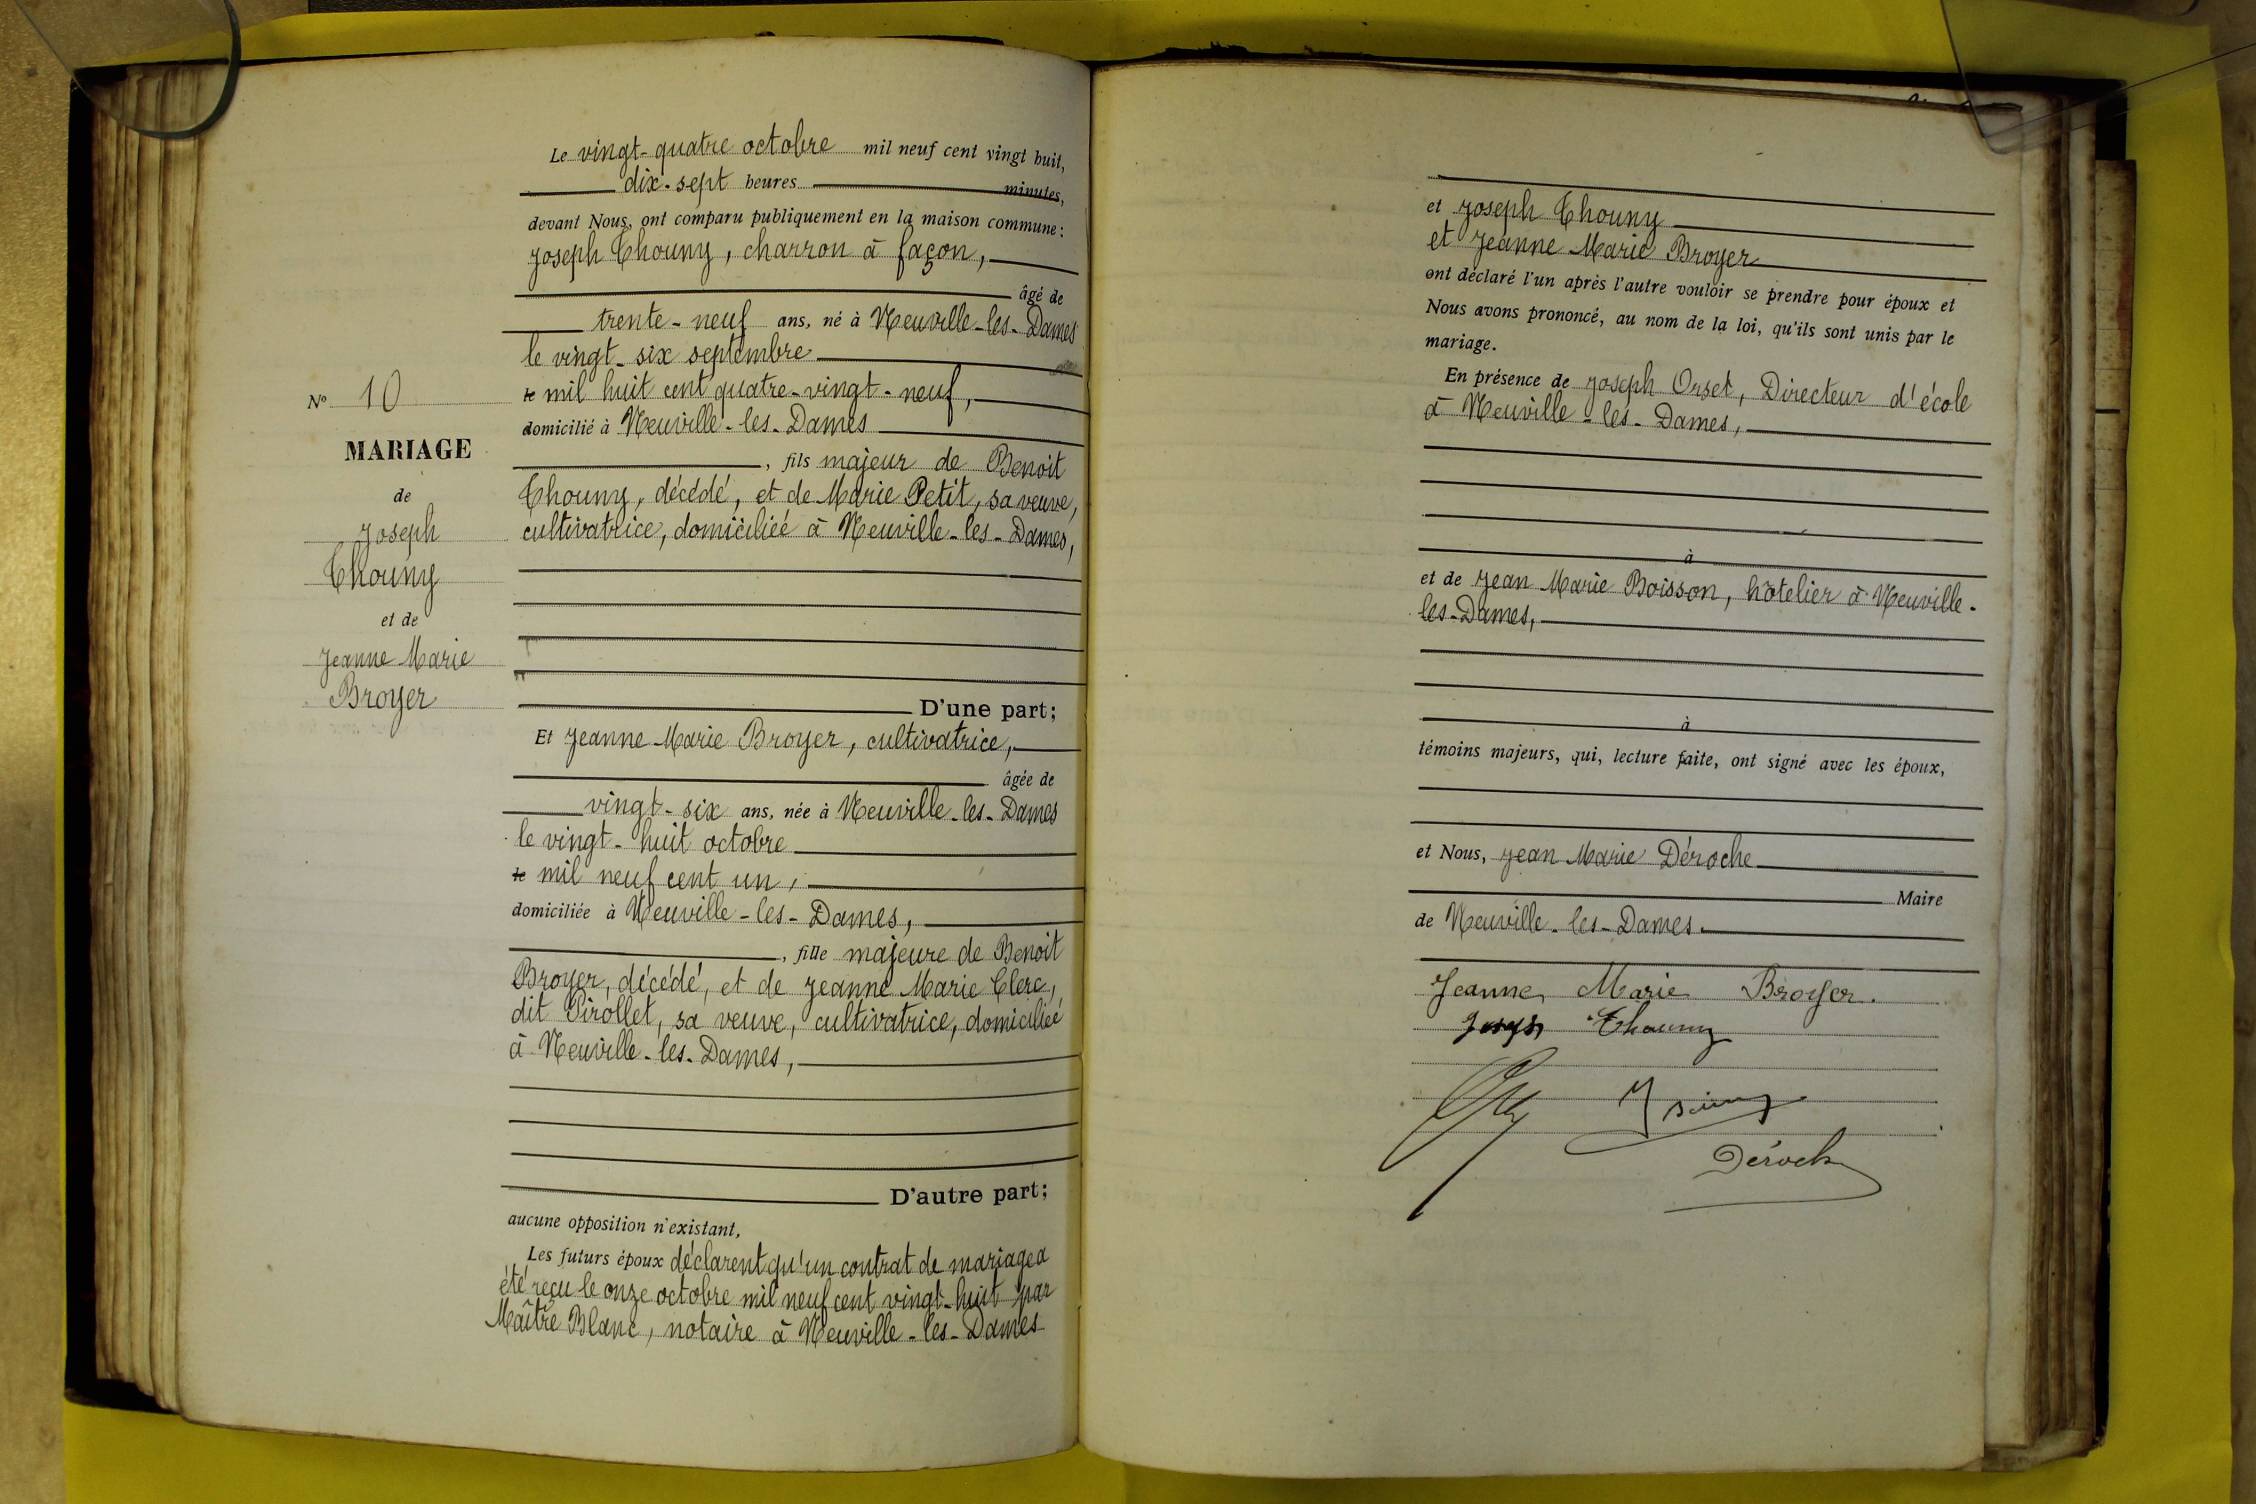 Le vingt-quatre octobre mil neuf cent vingt huit,
dix-sept heures minutes,
devant Nous, ont comparu publiquement en la maison commune:
Joseph Thouny, charron à façon,
âgé de
trente-neuf ans, né à Neuville-les-Dames
le vingt-six septembre
le mil huit cent quatre-vingt-neuf,
domicilié à Neuville-les-Dames
, fils majeur de Benoit
Thouny, décédé, et de Marie Petit, sa veuve,
cultivatrice, domiciliée à Neuville-les-Dames,
D'une part;
Et Jeanne Marie Broyer, cultivatrice,
âgée de
vingt-six ans, née à Neuville-les-Dames
le vingt-huit octobre
le mil neuf cent un,
domiciliée à Neuville-les-Dames,
, fille majeure de Benoit
Broyer, décédé, et de Jeanne Marie Clerc,
dit Pirollet, sa veuve, cultivatrice, domiciliée
à Neuville-les-Dames,
D'autre part;
aucune opposition n'existant,
Les futurs époux déclarent qu'un contrat de mariage a
été reçu le onze octobre mil neuf cent vingt-huit par
Maître Blanc, notaire à Neuville-les-Dames
N° 10
MARIAGE
de
Joseph
Thouny
et de
Jeanne Marie
Broyer
et Joseph Thouny
et Jeanne Marie Broyer
ont déclaré l'un après l'autre vouloir se prendre pour époux et
Nous avons prononcé, au nom de la loi, qu'ils sont unis par le
mariage.
En présence de Joseph Orset, Directeur d'école
à Neuville-les-Dames,
à
et de Jean Marie Boisson, hôtelier à Neuville-
les-Dames,
à
témoins majeurs, qui, lecture faite, ont signé avec les époux,
et Nous, Jean Marie Déroche
Maire
de Neuville-les-Dames.
Jeanne Marie Broyer.
Joseph Thouny
Déroche